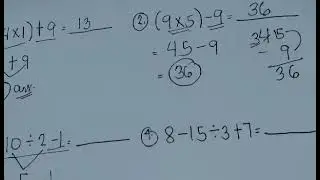 4×1) + 9 = 13
+ 9
ans.
② (9×5) - 9 = 36
= 45 - 9
= 36
3 4 15
- 9
36
10 ÷ 2 - 1 =
④ 8 - 15 ÷ 3 + 7 =